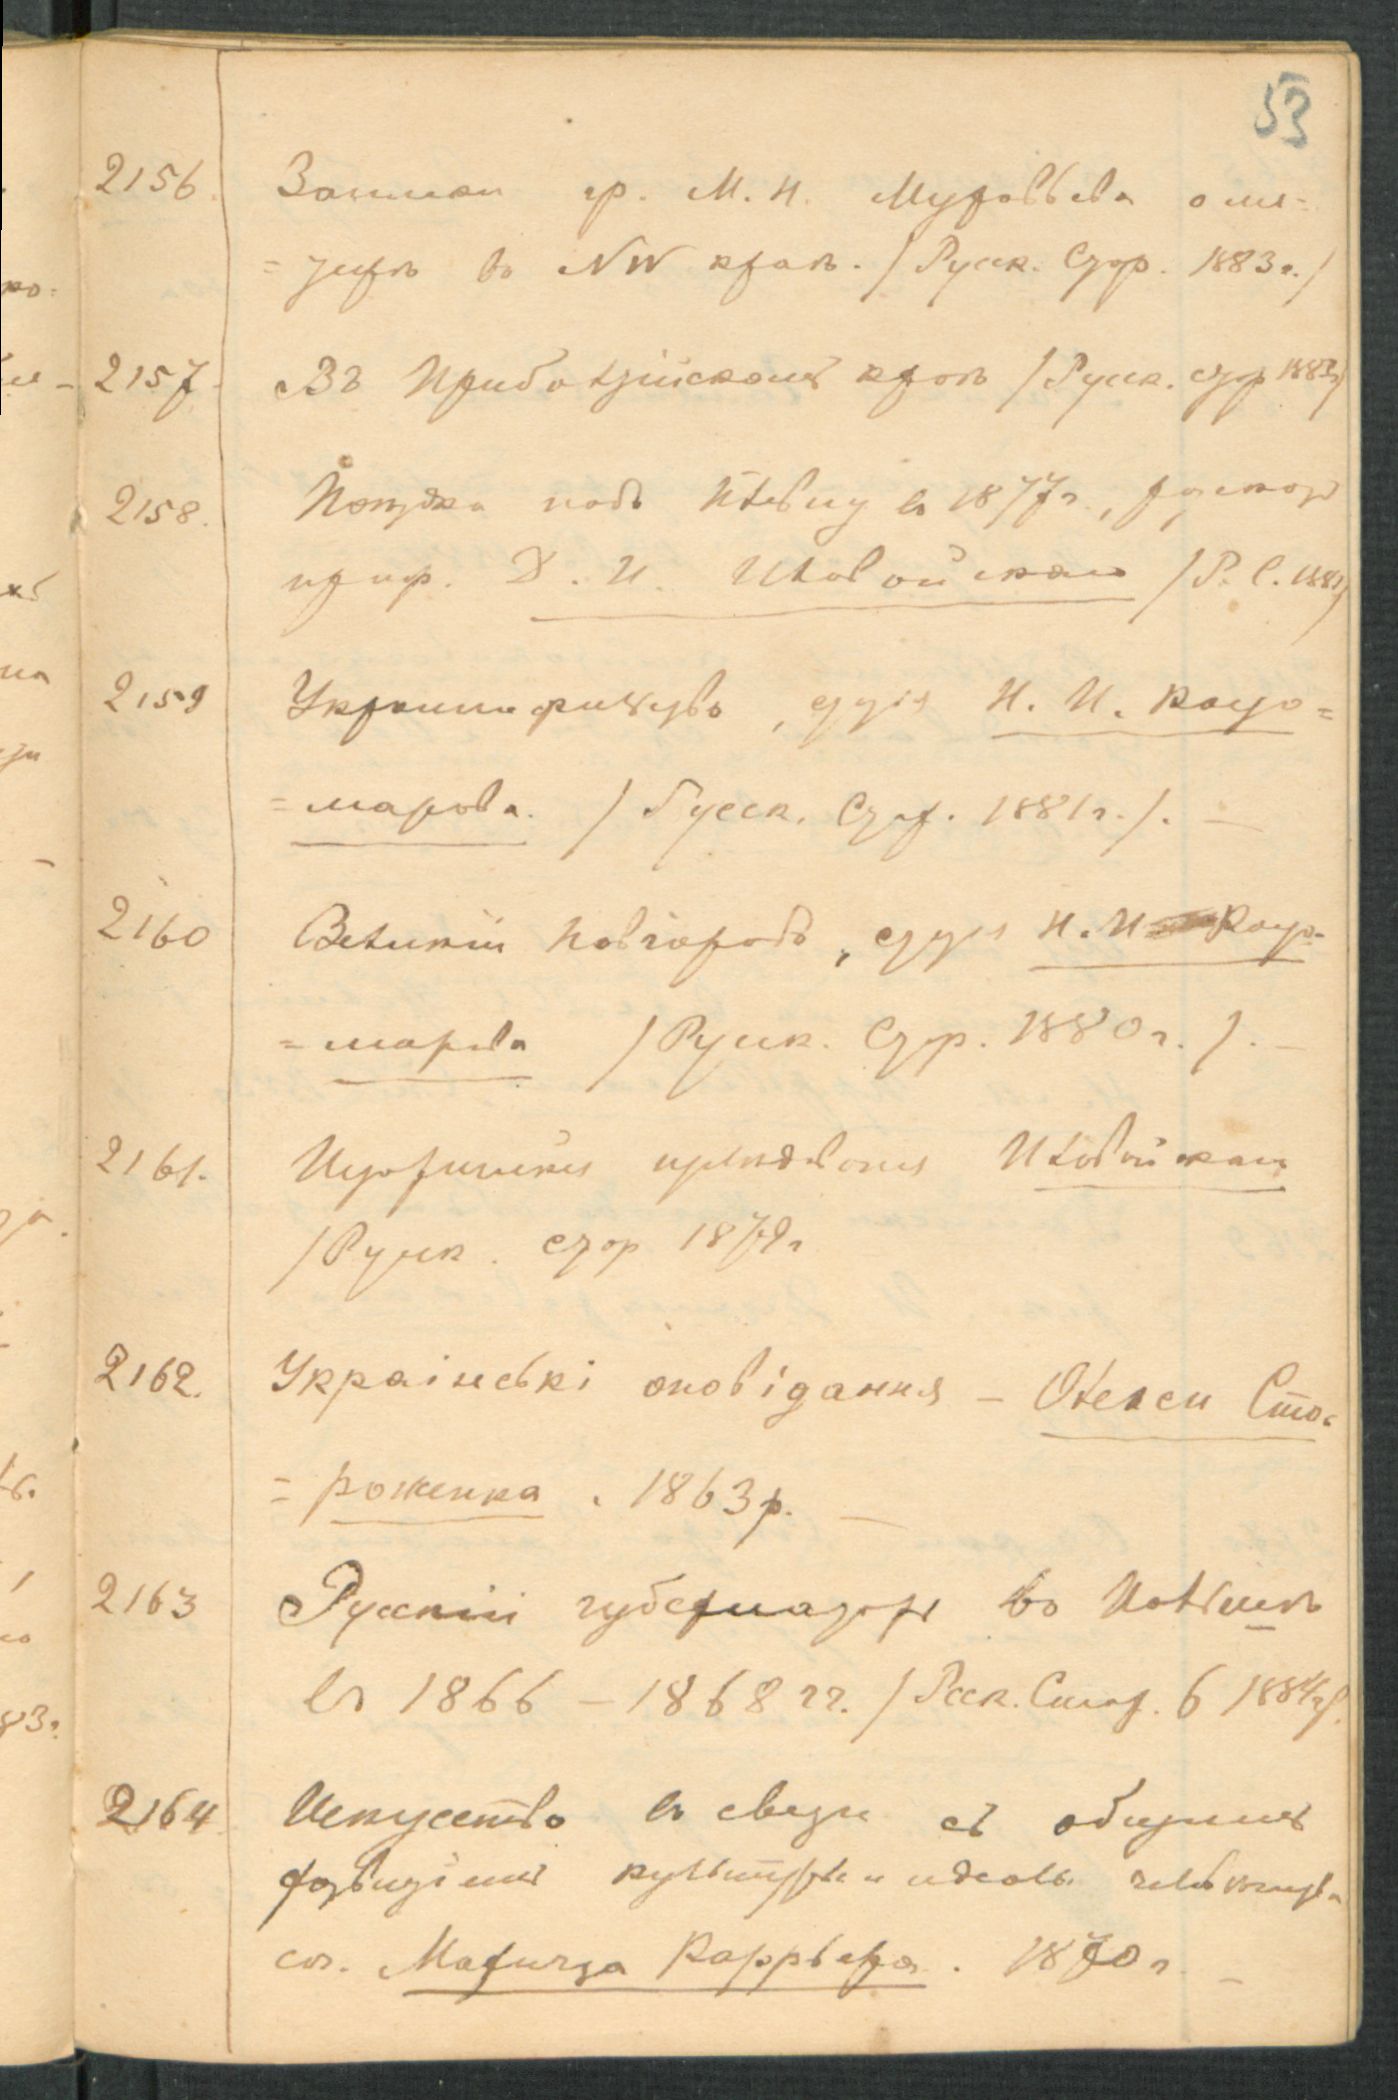 53
2156. Записки гр. М. Н. Муравьева о мя-
= тежѣ въ NW краѣ. / Русск. Стар. 1883 г. /
2157. Въ Прибалтійскомъ краѣ / Русск. стар 1883 /
2158. Поѣздка подъ Плевну въ 1877 г.,
Д. И. Иловайскаго / Р. С. 188
2159 Украинофильство, статья Н. И. Косто=
= марова. / Русск. Стар. 1881 г. /. —
2160 Великій Новгородъ, статья Н. И. Косто-
= марова / Русск. Стар. 1880 г. /. —
2161. Иловайскаго
/ Русск. стар 187
2162. Украінські оповідання – Олекси Сто-
= роженка. 1863 р. —
2163 Русскій губернаторъ въ Польшѣ
въ 1866 – 1868 гг. / Рсск. Стар. 6 1884 г /.
2164 Искусство въ связи съ общимъ
развитіемъ культуры и идеалы человѣчества
соч. Морица Каррьера. 1870 г. —